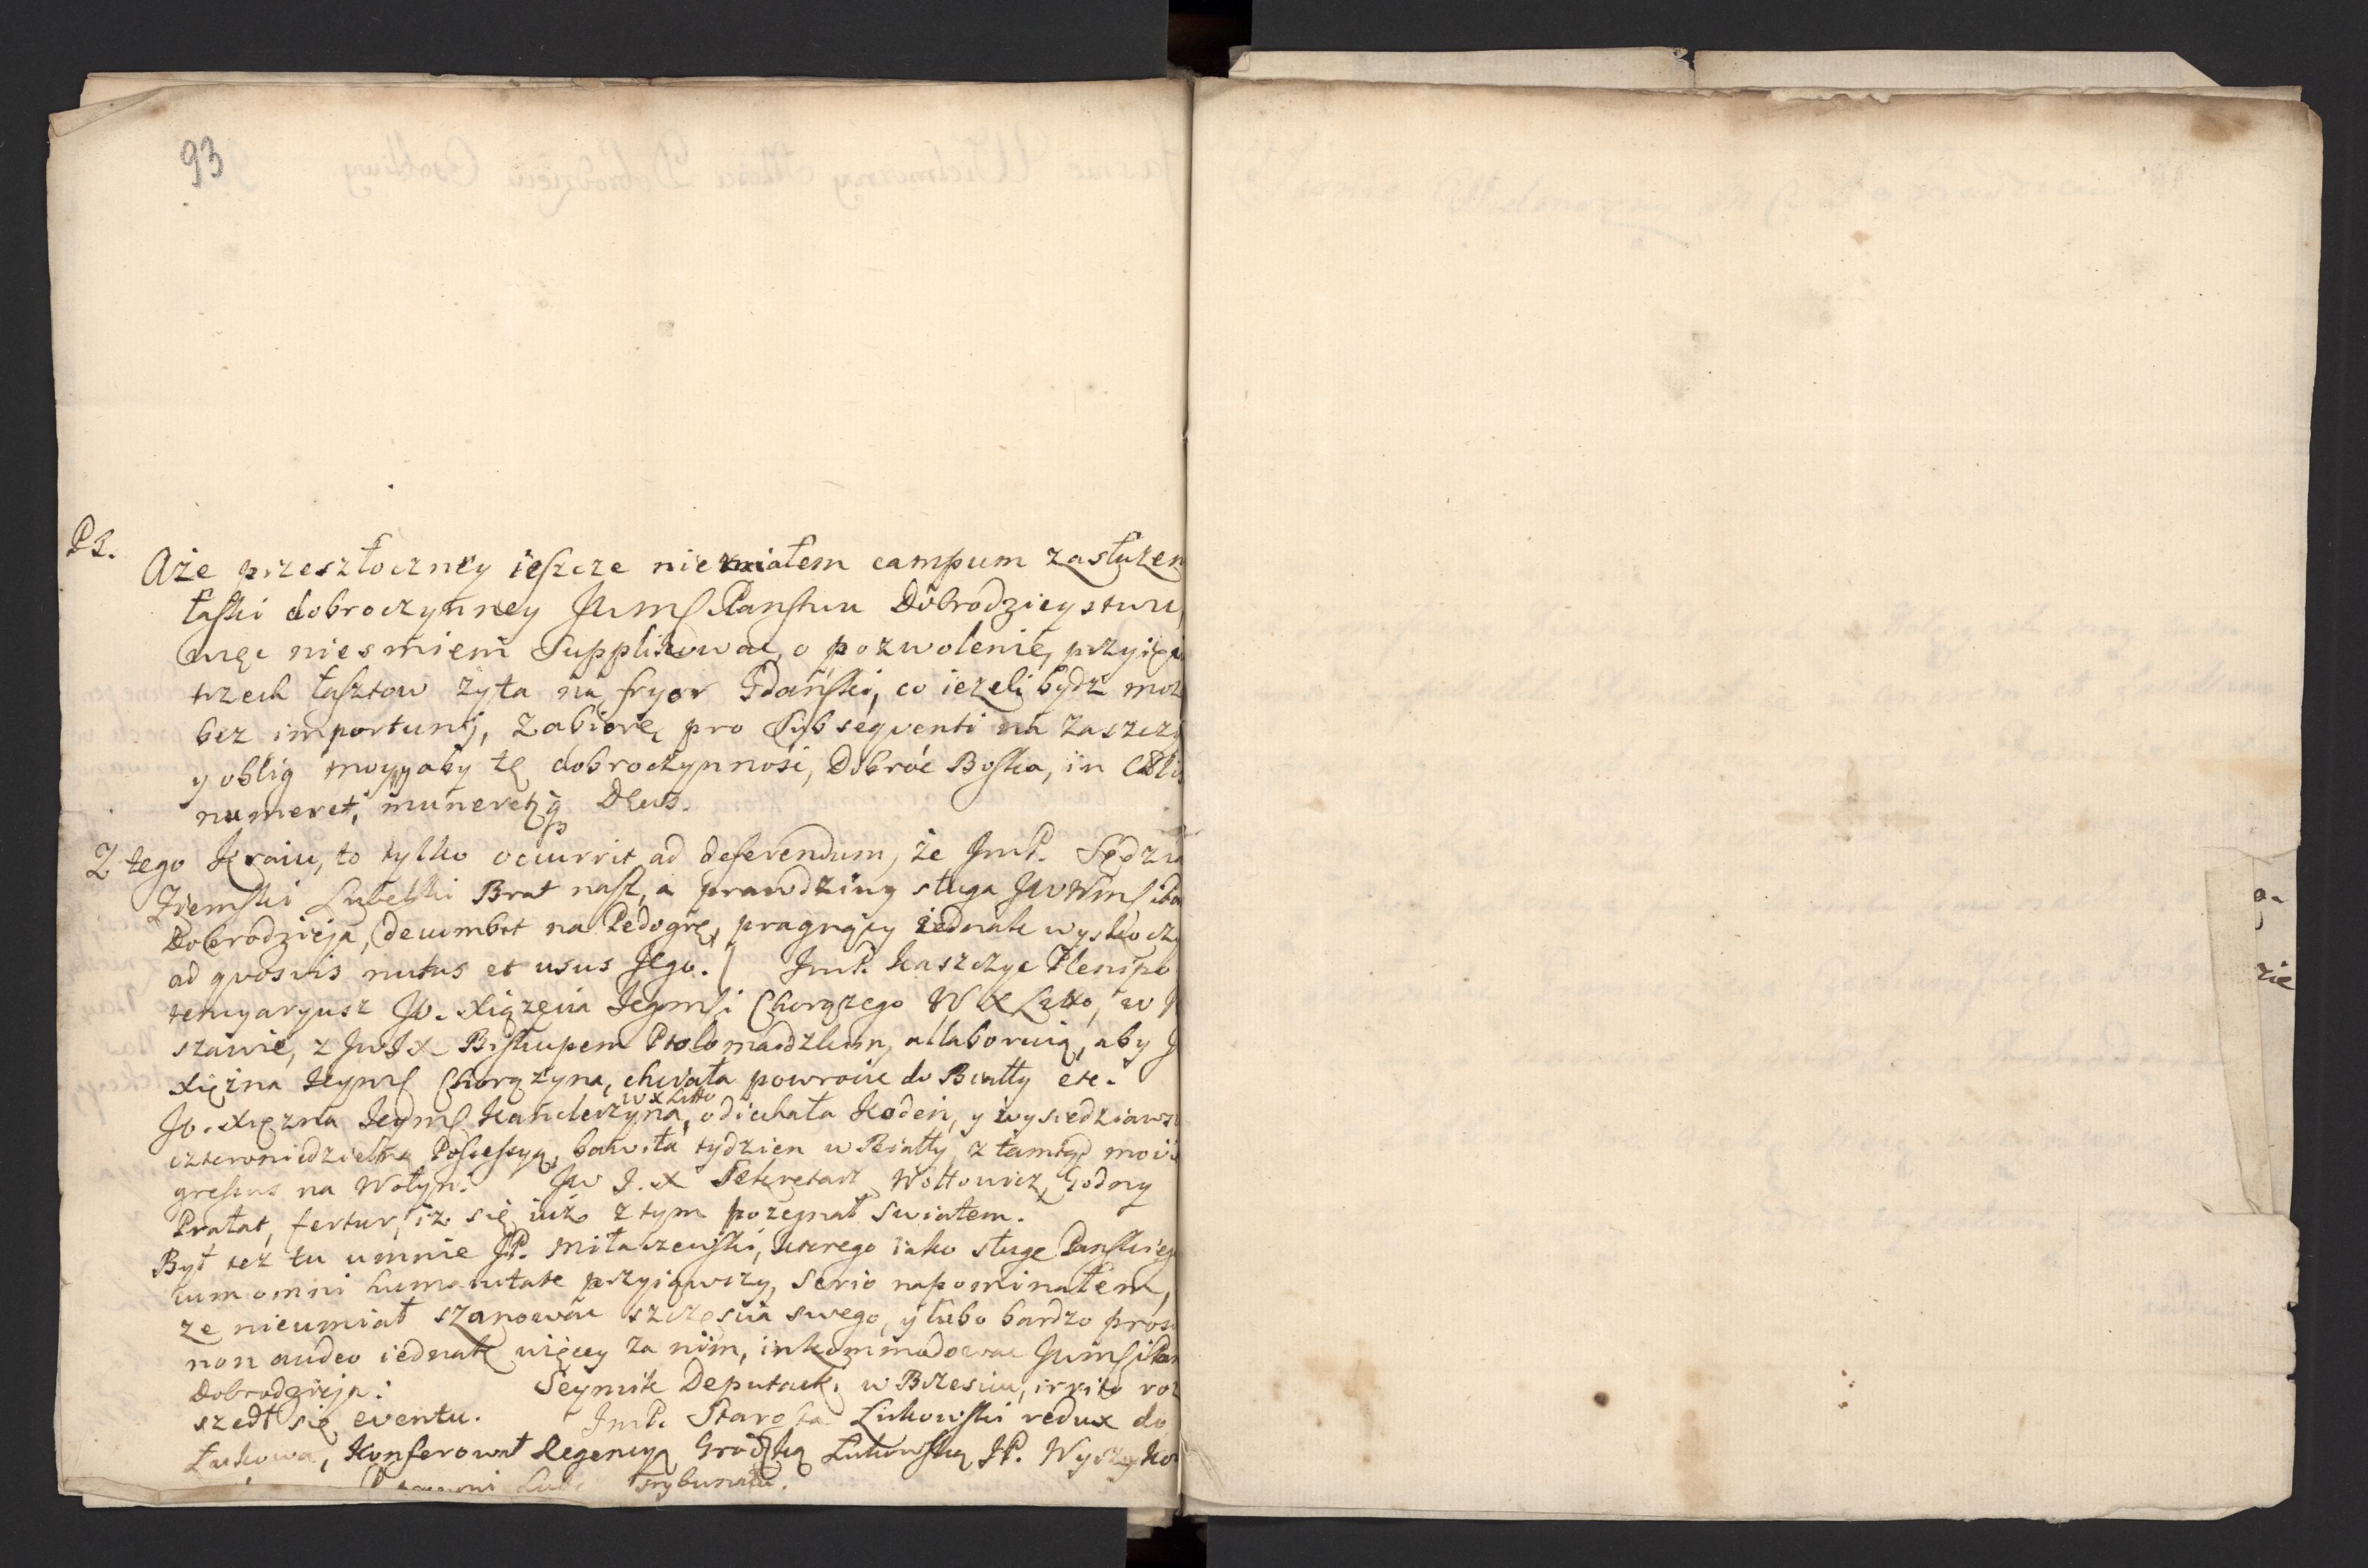 93
PS.
Aże przeszłoczney ieszcze niemiałem campum zasłużen
łaski dobroczynney JWmś Państwu Dobrodzieystwu,
więc niesmiem Supplikować, o pozwolenie, przyięci
trzech łasztow żyta na fryor Gdański, co ieżeli bydź moż
bez importunij, Zabiorę pro Subseqventi na Zaszczy
y oblig moy, aby tę dobroczynność, Dobroć Boska, in
numeret, muneretq Deus.
Z tego Kraiu, to tylko ocurrit ad deferendum, że JmP. Sędzia
Ziemski Lubelski Brat nasz, a prawdziwy sługa JWWmś
Dobrodzieja, decumbet na Pedogrę, pragnący iednak wyskoczy
ad qvosvis nutus et usus Jego. JmP. Kaszczyc Plenipo
tencyaryusz JO. Xiążęcia Jegmści Chorążego W X Litto, w
szawie, z JWJX Biskupem Ptolomaidzkim, allaboruią, aby J
Xiężna Jeymś Chorążyna, chciała powrocić do Biały etc.
W X Litto
JO. Xiężna Jeymś Kanclerzyna, odiechała Kodeń, y wysiedziaws
czteroniedzielną Possessyą, bawiła tydzien w Biały, z tamtąd
gressus na Wołyn. JW J. X Sekretarz Wołłowicz, Godny
Prałat, fertur, iz się iuż z tym pozegnał Swiatem.
Był tez tu umnie JP. Miłaczewski, ktorego iako sługę Panskieg
cum omni humanitate przyiąwszy, Serio napominałem,
ze nieumiał szanować szczęscia swego, y lubo bardzo pros
non audeo iednak więcey za nim, inkommodować JWmś
Dobrodzieja. Seymik Deputack. w Brzesciu, irrito roz
szedł się eventu. JmP. Starosta Łukowski redux do
Łukowa, Konferował Regencyą Grodzką Łukowską JP. Wyszyko
Lub. Trybunału.
zie